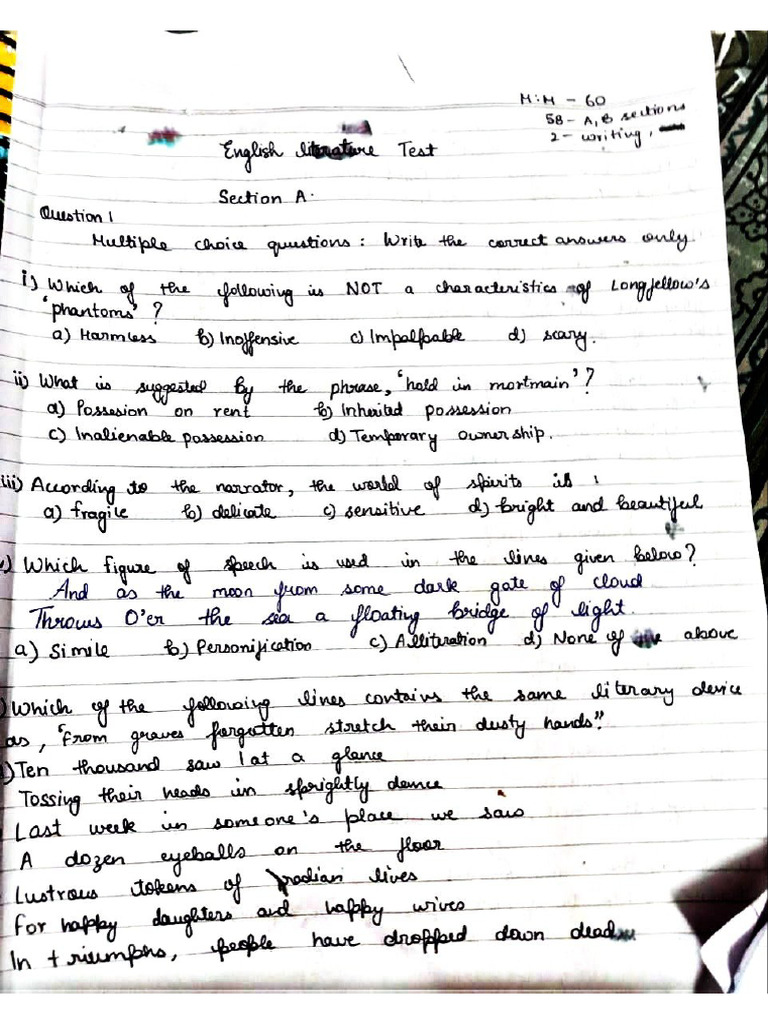 M:M - 60
58 - A, B sections
2 - writing.
English literature Test
Section A.
Question 1
Multiple choice questions : Write the correct answers only
i) Which of the following is NOT a characteristics of Longfellow's
'phantoms' ?
a) Harmless b) Inoffensive c) Impalpable d) scary.
ii) What is suggested by the phrase, 'hold in mortmain' ?
a) Possesion on rent b) Inherited possession
c) Inalienable possession d) Temporary ownership.
iii) According to the narrator, the world of spirits is :
a) fragile b) delicate c) sensitive d) bright and beautiful
) Which figure of speech is used in the lines given below?
And as the moon from some dark gate of cloud
Throws O'er the sea a floating bridge of light.
a) Simile b) Personification c) Alliteration d) None of above
) Which of the following lines contains the same literary device
as, 'From graves forgotten stretch their dusty hands".
) Ten thousand saw I at a glance
Tossing their heads in sprightly dance
Last week in someone's place we saw
A dozen eyeballs on the floor
Lustrous tokens of lives
For happy daughters and happy wives
In triumphs, people have dropped down dead